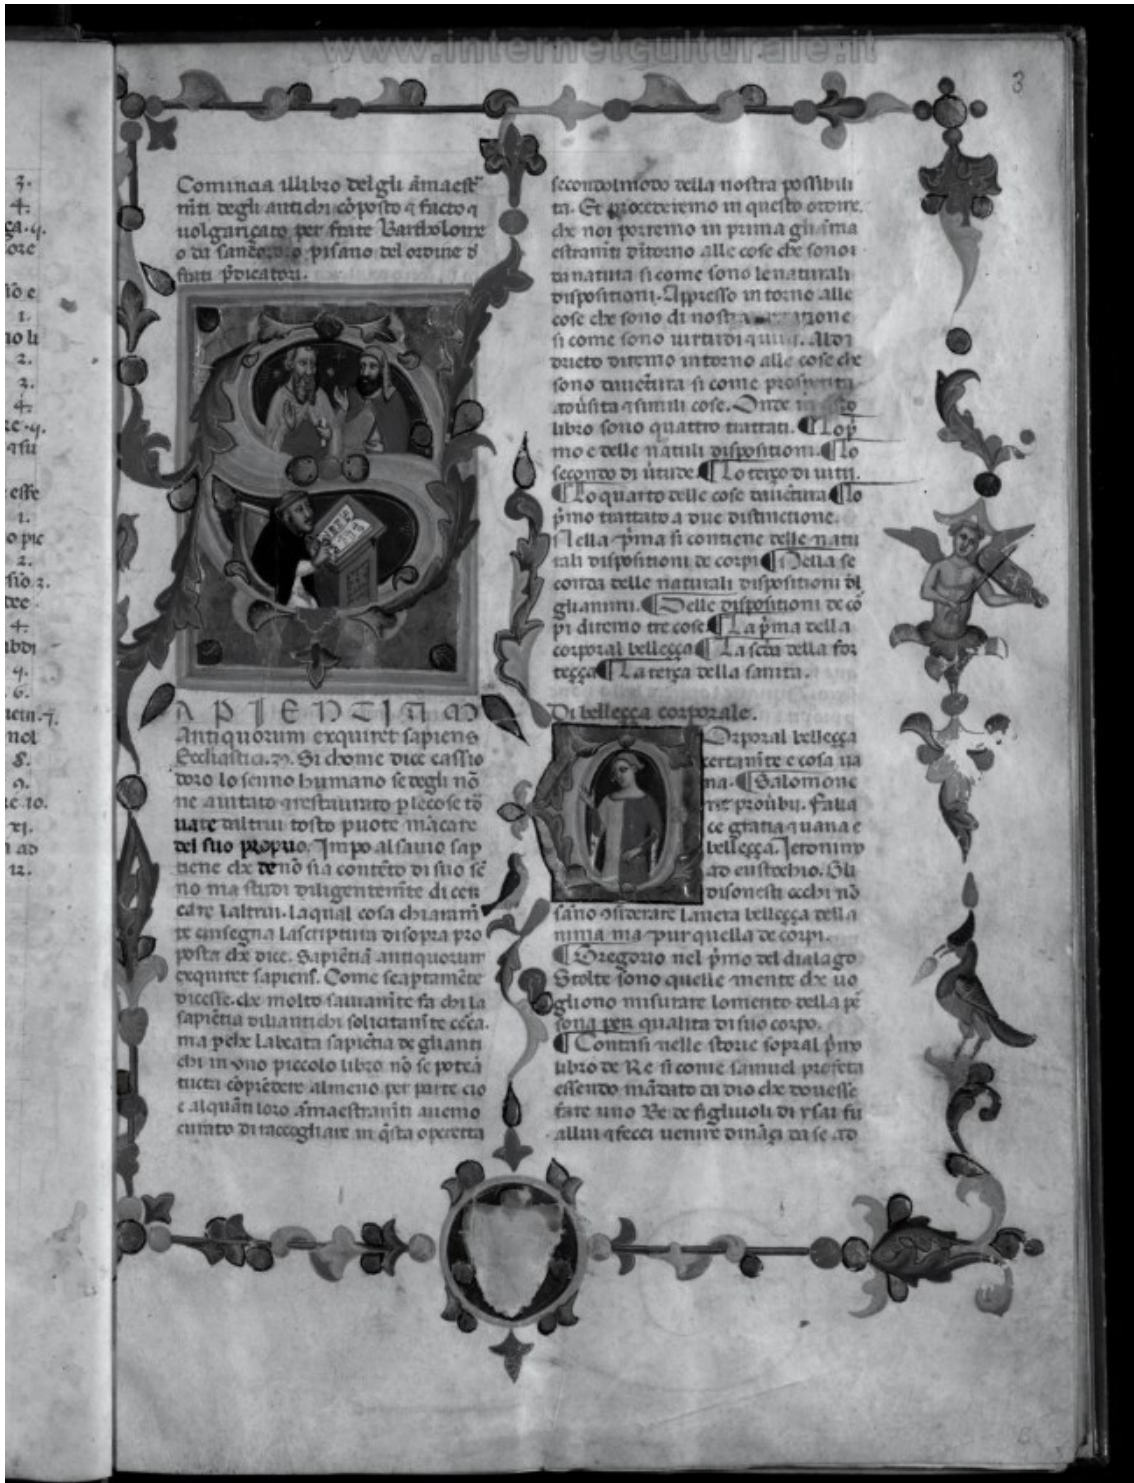 www.internetculturale.it
3
Comincia illibro delgli āmaest
mīti degli antichi cōposto ⁊ facto ⁊
uolgariçato per frate Bartholome
o da sancōcordio pisano del ordine d
frati p̄dicatori.
SAPIENTIAM
Antiquorum exquiret sapiens
Ecclīastici. Si chome dice cassio
doro lo senno humano se degli nō
ne aiutato ⁊ restaurato p lecose tō
uate daltrui tosto puote mācare
del suo propio. Impo al sauio sap
tiene che denō sia contēto di suo sē
no ma studi diligentemīte di cer
care laltrui. laqual cosa chiaram̄
te cinsegna lascriptura disopra pro
posta che dice. Sapiētiā antiquorum
exquiret sapiens. Come seaptamēte
dicesse. che molto sauiamīte fa chi la
sapiētia diliantichi solicitamīte cēca.
ma pche labeata sapiētia deglianti
chi in uno piccolo libro nō se poteā
tucta cōprēdere almeno per parte cio
e alquāti loro āmaestramīti auemo
curato di raccogliare in q̄sta operetta
secondolmodo della nostra possibili
ta. Et procederemo in questo ordine.
che noi porremo in prima gli āma
estramīti dītorno alle cose che sonoi
di natura si come sono lenaturali
dispositioni. Appresso in torno alle
cose che sono di nostra
si come sono uirtudi
drieto diremo intorno alle cose che
sono di uētura si come prosperita
aduīsita ⁊ simili cose. Onde in
libro sono quattro trattati. ¶ Lo p̄
mo e delle natuāli dispositioni. ¶ Lo
secondo di ūtude. ¶ Lo terço di uitii.
¶ Lo quarto delle cose di uētura ¶ Lo
p̄mo trattato a due distinctione.
Nella p̄ma si contiene delle natu
rali dispositioni de corpi ¶ Nella se
conda delle naturali dispositioni dl
gli animi. ¶ Delle dispositioni de cō
pi diremo tre cose ¶ La p̄ma della
corporal belleçça ¶ La scda della for
teçça ¶ La terça della sanita.
Di belleçça corporale.
Orporal belleçça
certamīte e cosa ua
na. ¶ Salomone
ne prouībii. Falla
ce gratia ⁊ uana e
belleçça. Jeronimo
ad eustochio. Gli
disonesti occhi nō
sāno ⁊siderare lauera belleçça della
nima ma pur quella de corpi.
¶ Gregorio nel p̄mo del dialago
Stolte sono quelle mente che uo
gliono misurare lomento della pē
sona per qualita di suo corpo.
¶ Contasi nelle storie sopral p̄mo
libro de Re si come samuel profeta
essendo mādato da dio che douesse
fare uno Re de figliuoli di ysai fu
allui ⁊ fecci uenire dināçi da se ad